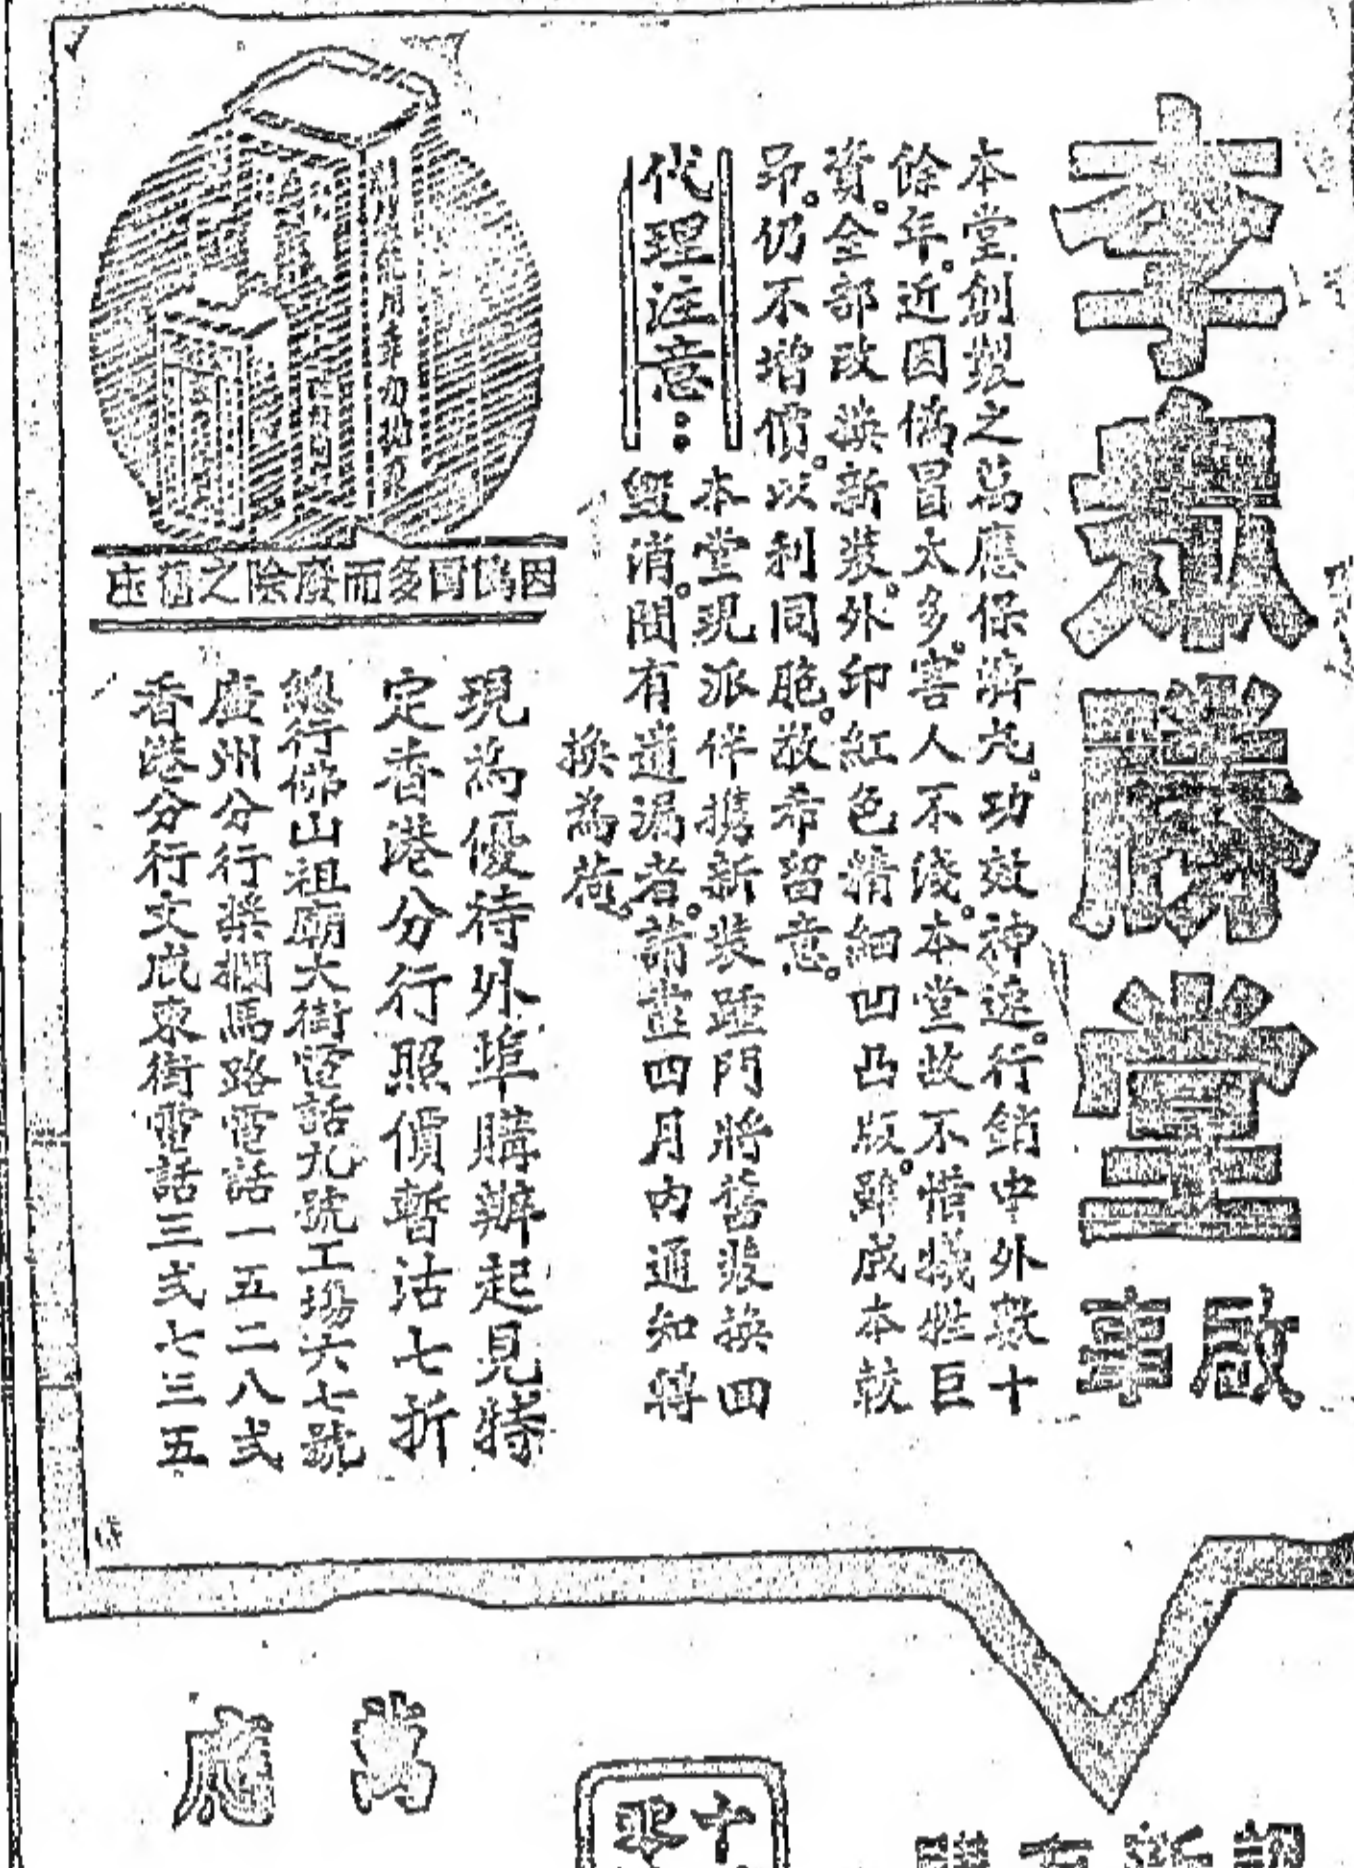 李衆勝堂
啟事
本堂創製之萬應保濟丸。功效神速。行銷中外數十
餘年。近因僞冒太多。害人不淺。本堂故不惜犧牲巨
資。全部改換新裝。外印紅色精細凹凸版。雖成本較
昂。仍不增價。以利同胞。敬希留意。
代理注意：
本堂現派伴携新裝踵門將舊裝換回
毀消。間有遺漏者。請壹四月內通知轉
換為荷。
因僞冒多而廢除之舊庄
現為優待外埠購辦起見特
定香港分行照價暫沽七折
總行佛山祖廟大街電話九號工場六七號
廣州分行槳欄馬路電話一五二八弍
香港分行文咸東街電話三弍七三五
萬應